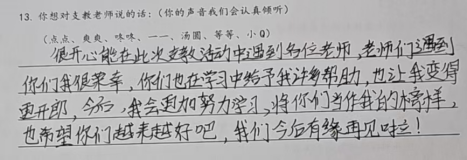 13. 你想对支教老师说的话：（你的声音我们会认真倾听）
（点点、爽爽、咔咔、一一、汤圆、等等、小Q）
很开心能在此次支教活动中遇到各位老师，老师们遇到
你们我很荣幸，你们也在学习中给予我许多帮助，也让我变得
更开郎，今后，我会更加努力学习，将你们当作我的榜样，
也希望你们越来越好吧，我们今后有缘再见啦！